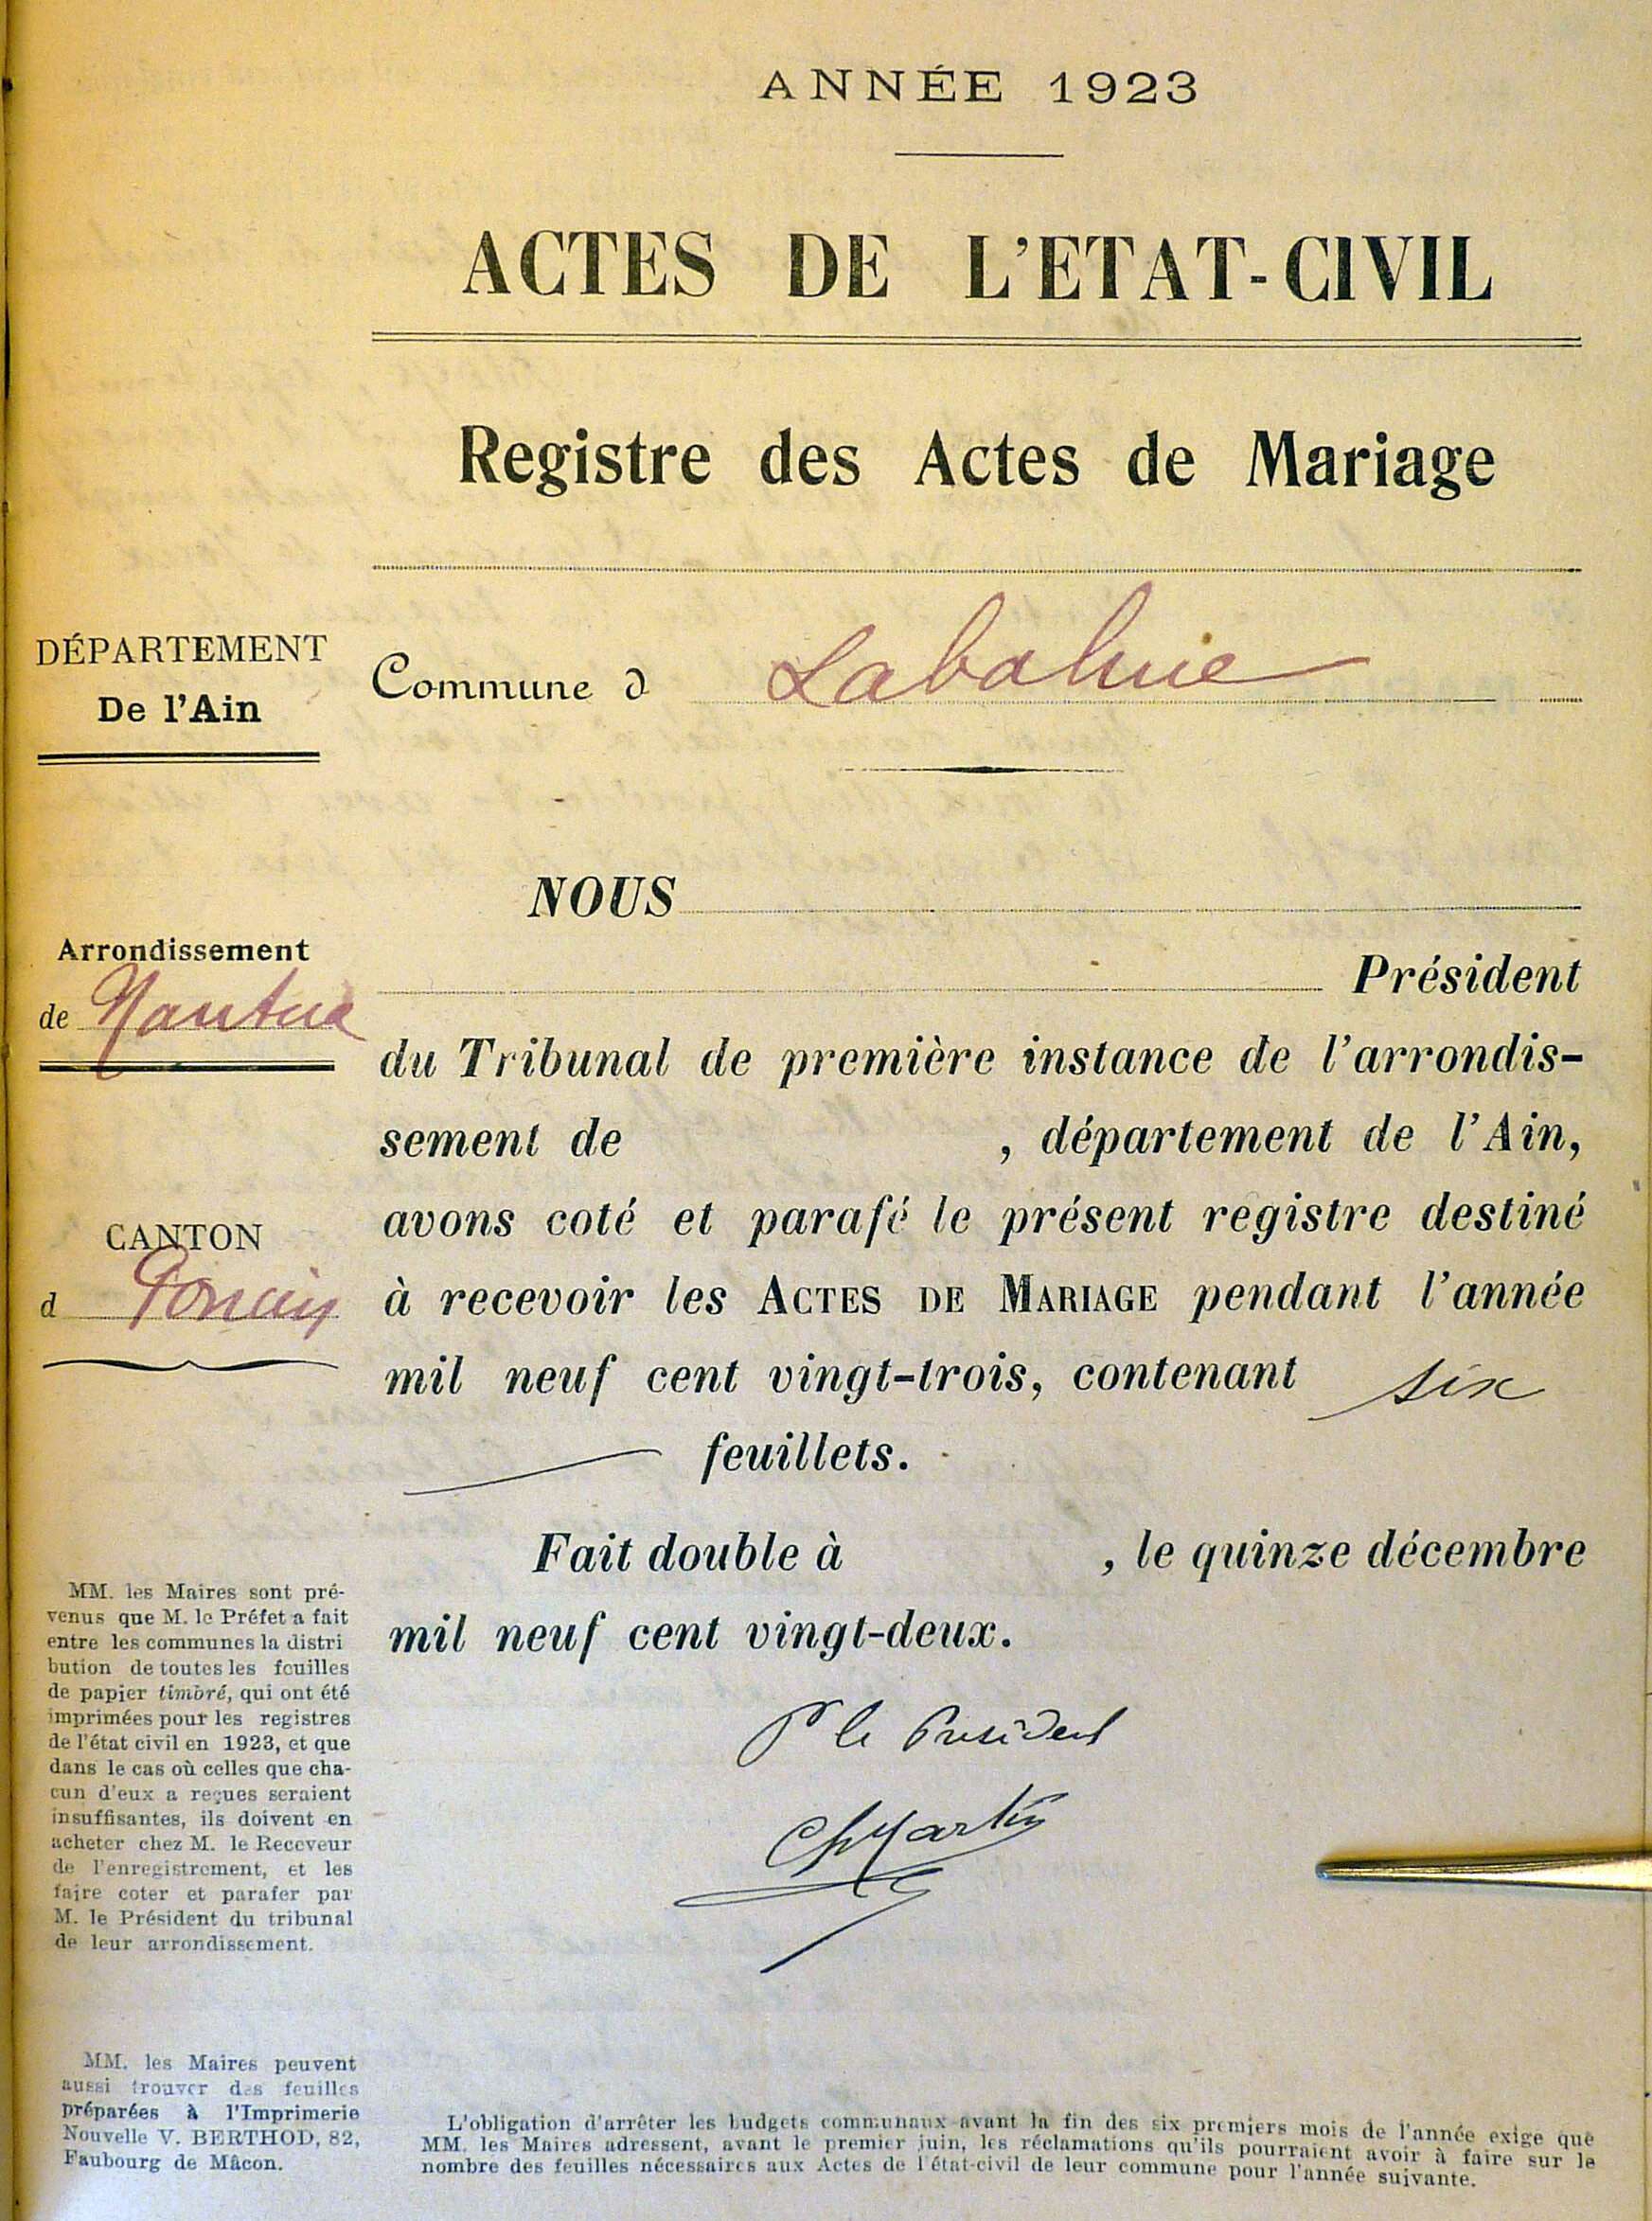 ANNÉE 1923
ACTES DE L'ETAT-CIVIL
Registre des Actes de Mariage
DÉPARTEMENT
De l'Ain
Commune d Labalme
NOUS
Arrondissement
de Nantua
Président
du Tribunal de première instance de l'arrondis-
sement de , département de l'Ain,
avons coté et parafé le présent registre destiné
CANTON
d Poncin
à recevoir les ACTES DE MARIAGE pendant l'année
mil neuf cent vingt-trois, contenant six
feuillets.
Fait double à , le quinze décembre
mil neuf cent vingt-deux.
Pr le Président
Ch Martin
MM. les Maires sont pré-
venus que M. le Préfet a fait
entre les communes la distri
bution de toutes les feuilles
de papier timbré, qui ont été
imprimées pour les registres
de l'état civil en 1923, et que
dans le cas où celles que cha-
cun d'eux a reçues seraient
insuffisantes, ils doivent en
acheter chez M. le Receveur
de l'enregistrement, et les
faire coter et parafer par
M. le Président du tribunal
de leur arrondissement.
MM. les Maires peuvent
aussi trouver des feuilles
préparées à l'Imprimerie
Nouvelle V. BERTHOD, 82,
Faubourg de Mâcon.
L'obligation d'arrêter les budgets communaux avant la fin des six premiers mois de l'année exige que
MM. les Maires adressent, avant le premier juin, les réclamations qu'ils pourraient avoir à faire sur le
nombre des feuilles nécessaires aux Actes de l'état-civil de leur commune pour l'année suivante.